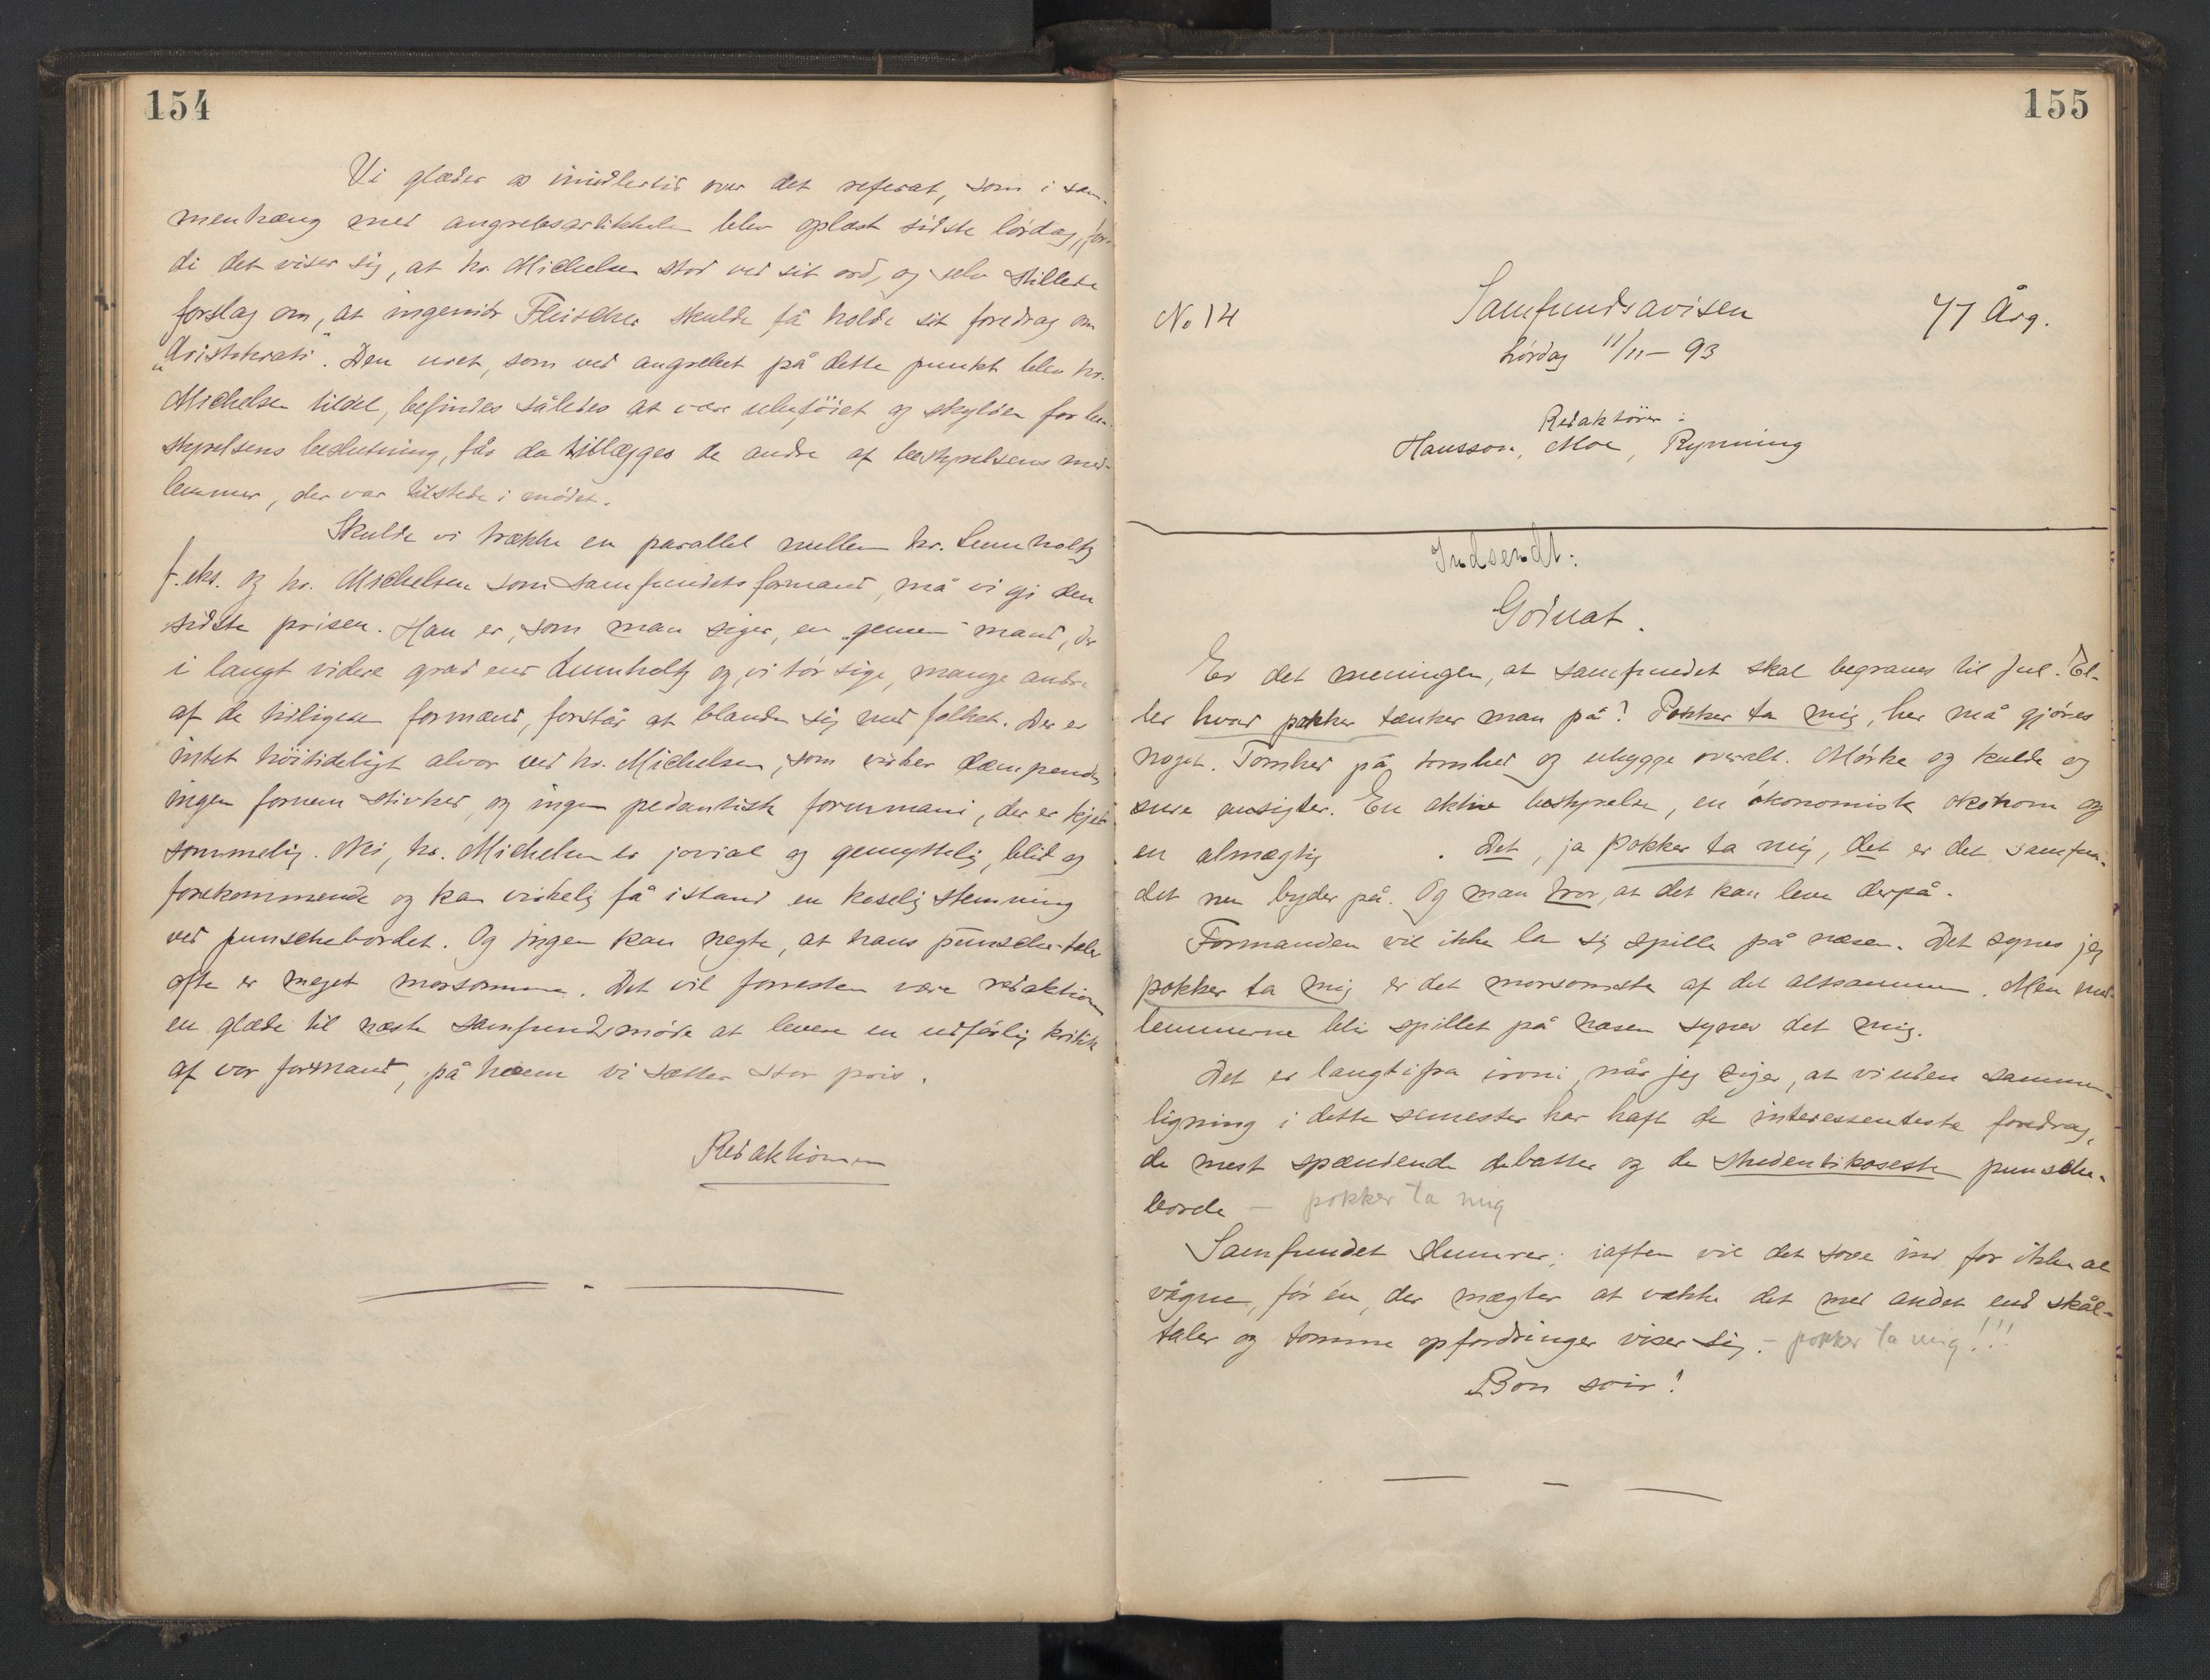 154
Vi glæder os imidlertid over det referat, som i sam-
menhæng med angrebsartikkelen blev oplæst sidste lørdag, for-
di det viser sig, at hr. Michelsen stod ved sit ord, og selv stillede
forslag om, at ingeniør Fleischer skulde få holde sit foredrag om
„Aristokrati". Den uret, som ved angrebet på dette punkt blev hr.
Michelsen tildel, befindes således at være ubeføiet og skylden for be-
styrelsens beslutning, får da tillægges de andre af bestyrelsens med-
lemmer, der var tilstede i mødet.
Skulde vi trække en parallel mellem hr. Lumholtz
f. eks. og hr. Michelsen som samfundets formand, må vi gi den
sidste prisen. Han er, som man siger, en „gemen" mand, der
i langt videre grad end Lumholtz og, vi tør sige, mange andre
af de tidligere formænd, forstår at blande sig med folket. Der er
intet høitideligt alvor ved hr. Michelsen, som virker dæmpende,
ingen fornem stivhed, og ingen pedantisk formmani, der er kjed-
sommelig. Nei, hr. Michelsen er jovial og gemyttelig, blid og
forekommende og kan virkelig få istand en koselig stemning
ved punschebordet. Og ingen kan negte, at hans punsche-taler
ofte er meget morsomme. Det vil forresten være redaktionen
en glæde til næste samfundsmøde at levere en udførlig kritik
af vor formand, på hvem vi sætter stor pris.
Redaktionen
155
No 14
Samfundsavisen
77 Årg.
Lørdag 11/11 – 93
Redaktører:
Hansson, Moe, Rynning
Indsendt:
Godnat.
Er det meningen, at samfundet skal begraves til jul. El-
ler hvad pokker tænker man på? Pokker ta mig, her må gjøres
noget. Tomhed på tomhed og uhygge overalt. Mørke og kulde og
sure ansigter. En aktiv bestyrelse, en økonomisk økonom og
en almægtig . Det, ja pokker ta mig, det er det samfun-
det nu byder på. Og man tror, at det kan leve derpå.
Formanden vil ikke la sig spille på næsen. Det synes jeg
pokker ta mig er det morsomste af det altsammen. Men med-
lemmerne blir spillet på næsen synes det mig.
Det er langtifra ironi, når jeg siger, at vi uden sammen-
ligning i dette semester har haft de interessenteste foredrag,
de mest spændende debatter og de studentikoseste punsche-
borde – pokker ta mig
Samfundet slumrer; iaften vil det sove ind for ikke at
vågne, før én, der mægter at vække det med andet end skål-
taler og tomme opfordringer viser sig. – pokker ta mig!!!
Bon soir!